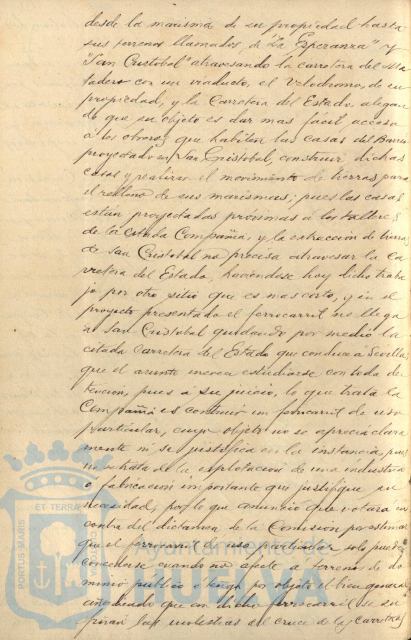 desde la marisma de su propiedad hasta
sus terrenos llamados de "La Esperanza" y
"San Cristobal" atravesando la carretera del Ma-
tadero con un viaducto, el Velodromo, de su
propiedad, y la Carretera del Estado, alegan-
do que su objeto es dar mas fácil acceso
a los obreros que habiten las casas del Barrio
proyectado en San Cristobal, construir dichas
casas y realizar el movimiento de tierras para
el relleno de sus marismas; pues las casas
están proyectadas proximas á los talleres
de la citada Compañia, y la extracción de tierras
de San Cristobal no precisa atravesar la Ca-
rretera del Estado, haciendose hoy dicho traba-
jo por otro sitio que es mas corto, y en el
proyecto presentado el ferrocarril no llega
a San Cristobal quedando por medio la
citada Carretera del Estado que conduce a Sevilla;
que el asunto merece estudiarse con toda de-
tencion, pues á su juicio, lo que trata la
Compañia es construir un ferrocarril de uso
particular, cuyo objeto no se aprecia clara-
mente ni se justifica en la instancia, pues
no se trata de la explotación de una industria
o fabricacion importante que justifique su
necesidad, por lo que anuncia que votara en
contra del dictamen de la Comision por estimar
que el ferrocarril de uso particular solo puede
concederse cuando no afecte a terreno de do-
minio publico o tenga por objeto el bien general
añadiendo que con dicho ferrocarril se su-
frirán las molestias del cruce de la carretera
PORTUS MARIS
ET TERRAE
CUSTODIA
Ayuntamiento de
HUELVA